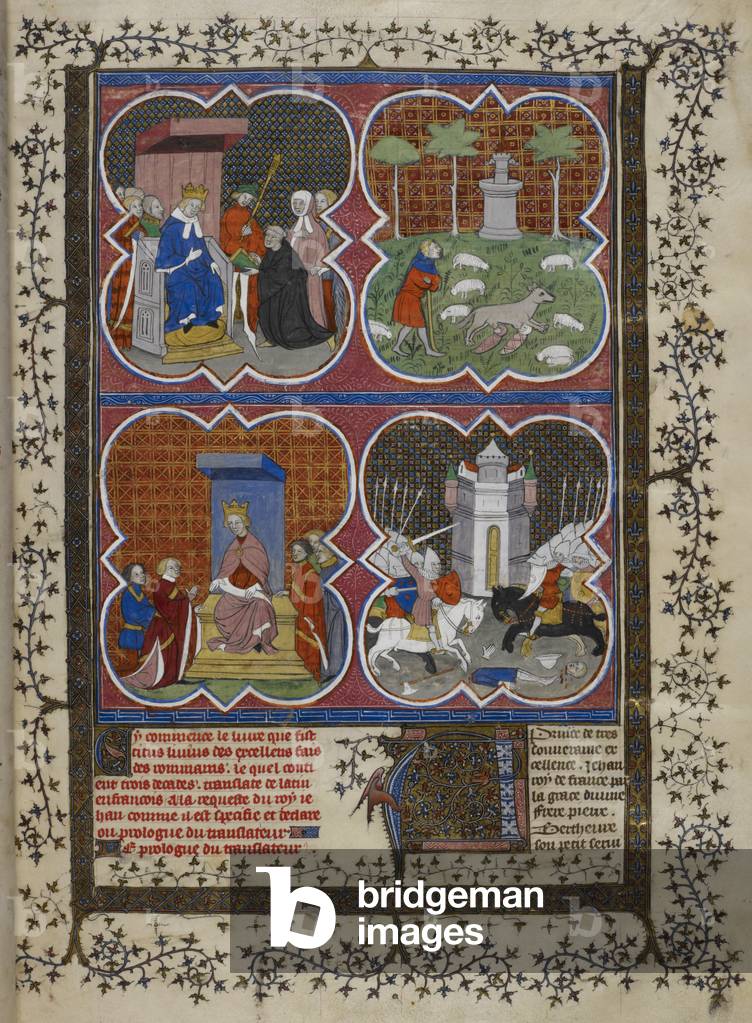 Cy commence le liure que fist
titus liuius des excellens fais
des rommains. le quel conti
ent trois decades. translate de latin
en francois a la requeste du roy ie
han comme il est specifie et declare
ou prologue du translateur
Le prologue du translateur
Prince de tres
souueraine ex
cellence. Jehan
roy de france par
la grace diuine
frere pierre.
Bertheure
son petit serui
b bridgeman
images